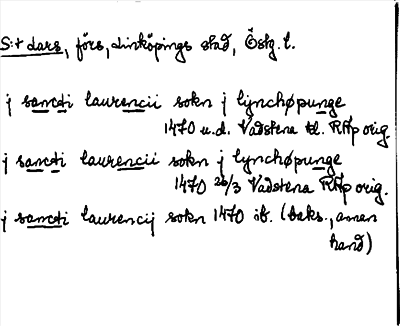 S:t Lars, förs, Linköpings stad, Östg. l.
j sancti laurencii sokn j lynchøpunge
1470 u.d. Vadstena kl. RAp orig.
j sancti laurencii sokn j lynchøpunge
1470 26/3 Vadstena RAp orig.
j sancti laurencij sokn 1470 ib. (baks., annan
hand)